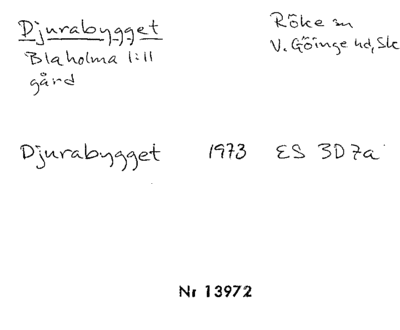 Djurabygget
Blaholma 1:11
gård
Röke sn
V. Göinge hd, Sk
Djurabygget 1973 ES 3D7a
Nr 13972